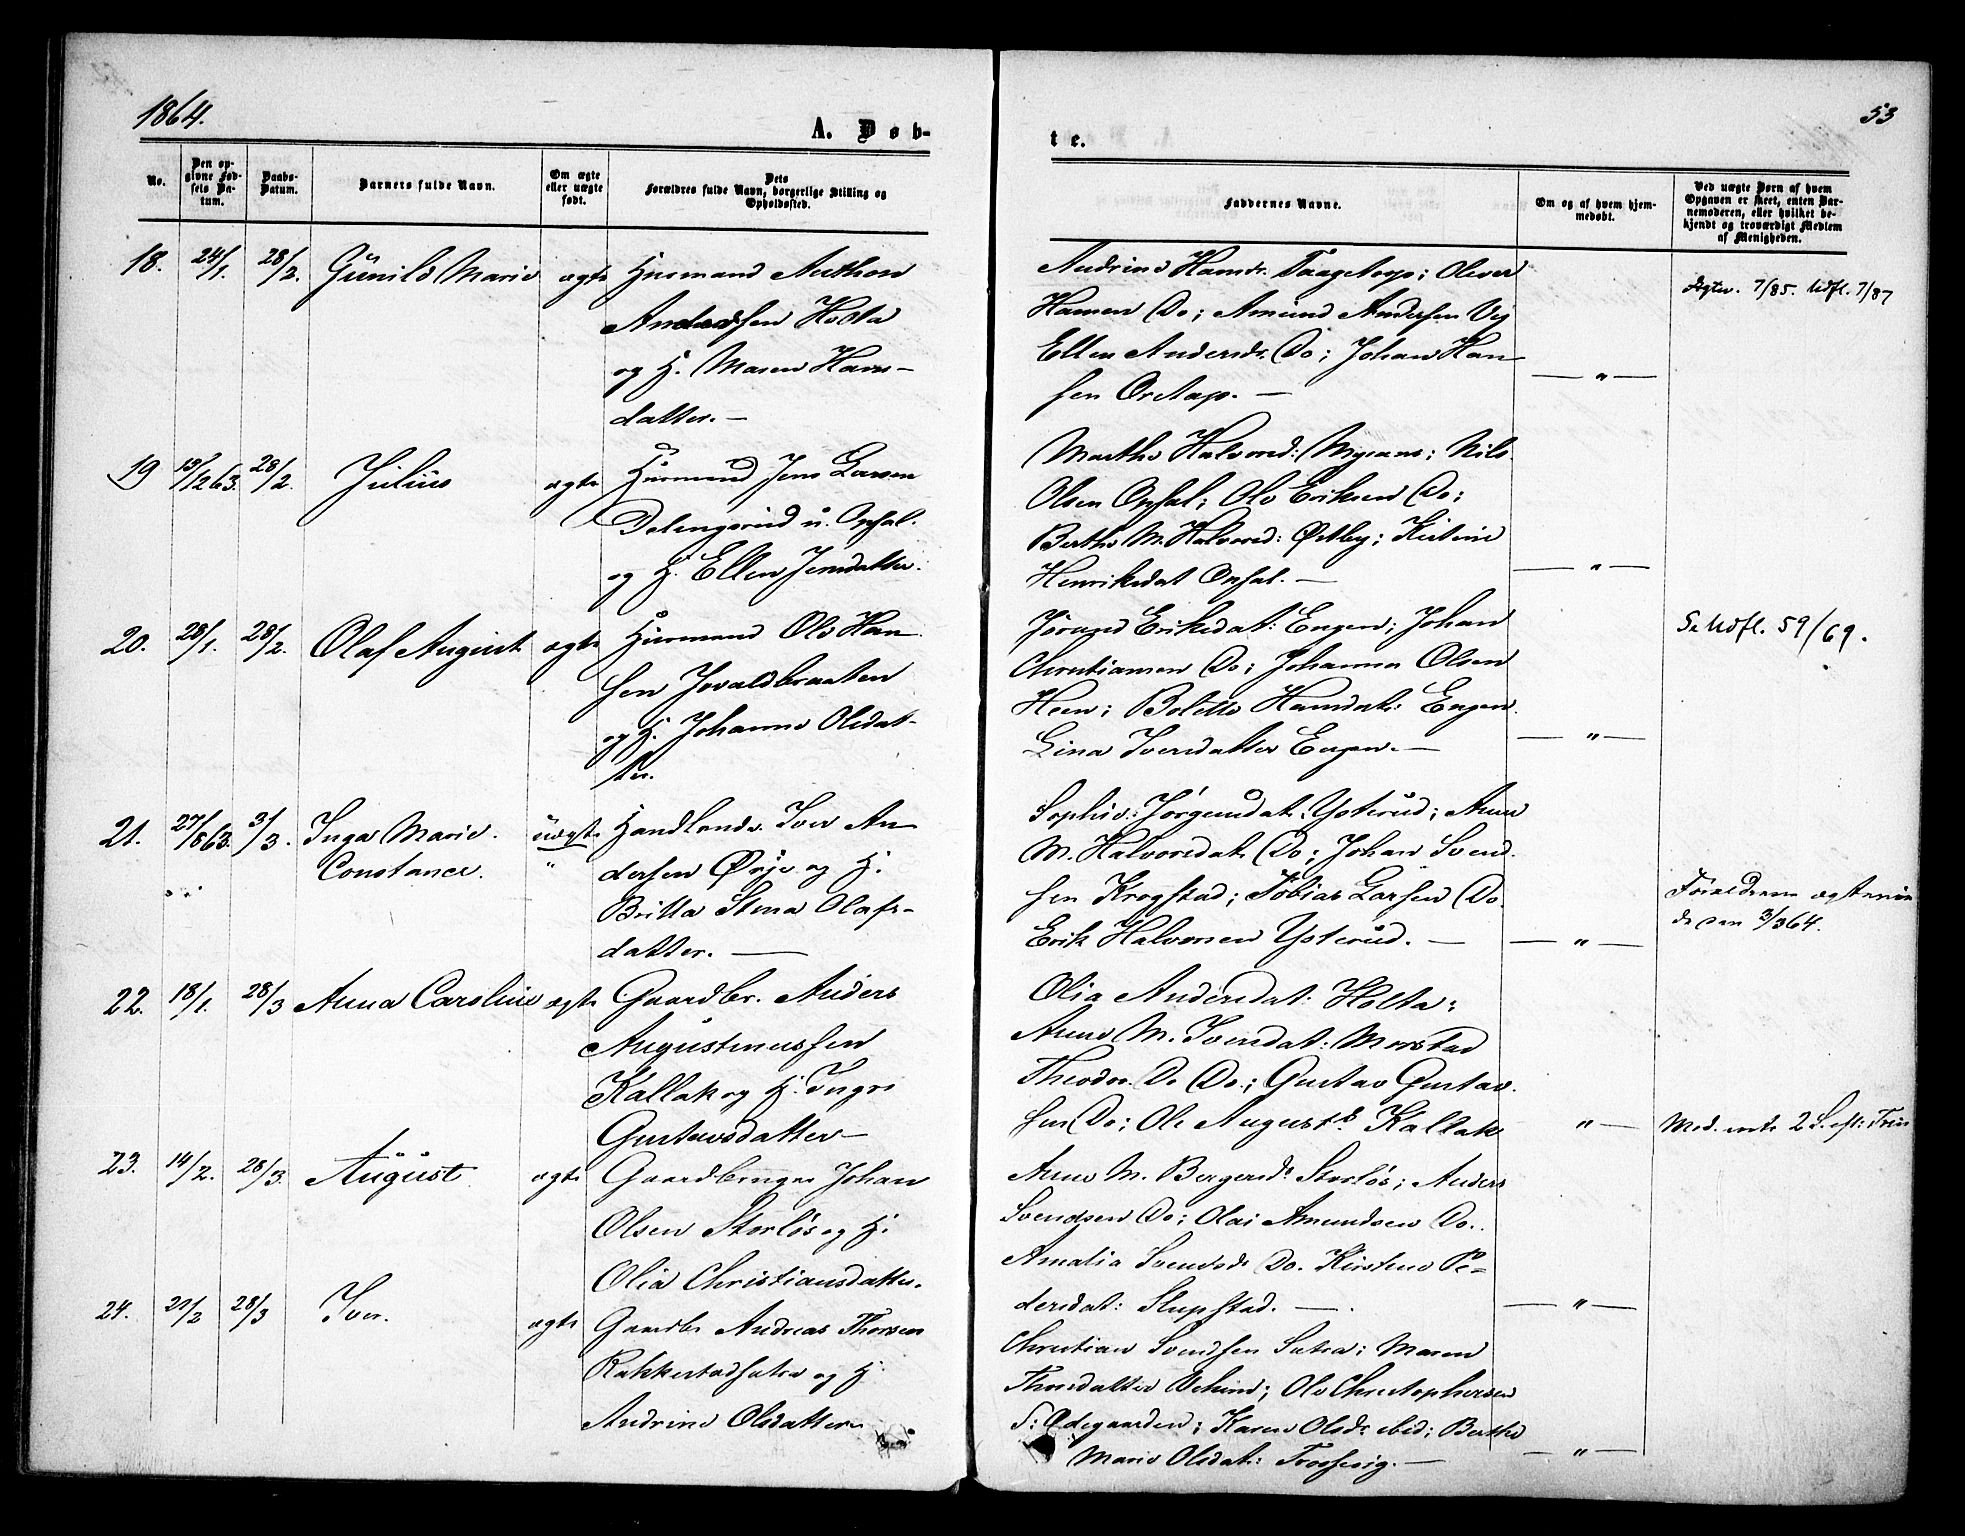 1864.
53
A. Døb-
te.
No.
Den op-
givne Fød-
sels Da-
tum.
Daabs-
Datum.
Barnets fulde Navn.
Om ægte
eller uægte
født.
Dets
Forældres fulde Navn, borgerlige Stilling og
Opholdssted.
Faddernes Navne.
Om og af hvem hjem-
medøbt.
Ved uægte Børn af hvem
Opgaven er skeet, enten Bar-
nemoderen, eller hvilket be-
kjendt og troværdigt Medlem
af Menigheden.
18. 24/1. 28/2. Gunild Marie ægte Husmand Anthon
Andersen Holta
og H. Maren Hans-
datter. —
Andrine Hansdr. Taagetorp; Oliver
Hansen Do; Amund Andersen Vej
Ellen Andersdr. Do; Johan Han-
sen Oretorp. —
— " —
7/85. Udfl. 7/87
19 13/12 63. 28/2. Julius ægte Husmand Jens Larsen
u. Opsal.
og H. Ellen Jensdatter.
Marthe Halvorsd: ; Nils
Olsen Opsal; Ole Eriksen Do;
Berthe M. Halvorsd: Østby; Kirstine
Henriksdat Opsal. —
— " —
20. 28/1. 28/2. Olaf August ægte Husmand Ole Han-
sen Jovaldbraaten
og H. Johanne Olsdat-
ter.
Jørand Eriksdat: Engen; Johan
Christiansen Do; Johannes Olsen
Heen; Bolette Hansdat: Engen.
Lina Iversdatter Engen. —
— " —
Se Udfl. 59/69.
21. 27/8 63. 3/3. Inga Marie uægte Handlende Iver An-
Constance. "
dersen Ørje og H.
Britta Stina Olafs-
datter. —
Sophie Jørgensdat. Ysterud; Anne
M. Halvorsdat. Do; Johan Svend-
sen Krogstad; Tobias Larsen Do.
Erik Halvorsen Ysterud. —
— " —
Forældrene ægtevie-
de den 3/3 64.
22. 18/1. 28/3 Anna Caroline ægte Gaardbr. Anders
Augustinussen
Kallak og H. Inger
Gustavsdatter —
Olia Andersdat: Holta;
Anne M. Iversdat: Morstad
Theodor. D. Do.; Gustav Gustav-
sen Do; Ole August Kallak
" —
Med. 2 S. eft: Trin
23. 14/2. 28/3. August ægte Gaardbruger Johan
Olsen Storløs og H.
Olia Christiansdatter.
Anne M. Bergersdr Storløs; Anders
Svendsen Do; Olai Amundsen Do.
Amalia Svendsdr Do. Kirstine Pe-
dersdat: Slupstad. —
— " —
24. 21/2 28/3 Iver. ægte Gaardbr Andreas Thorsen
Rakkestadsætra og H
Andrine Olsdatter
Christian Svendsen Sætra; Maren
Thorsdatter ; Ole Christophersen
S: Ødegaarden; Karen Olsdr ibid; Berthe
Marie Olsdat: —
— " —